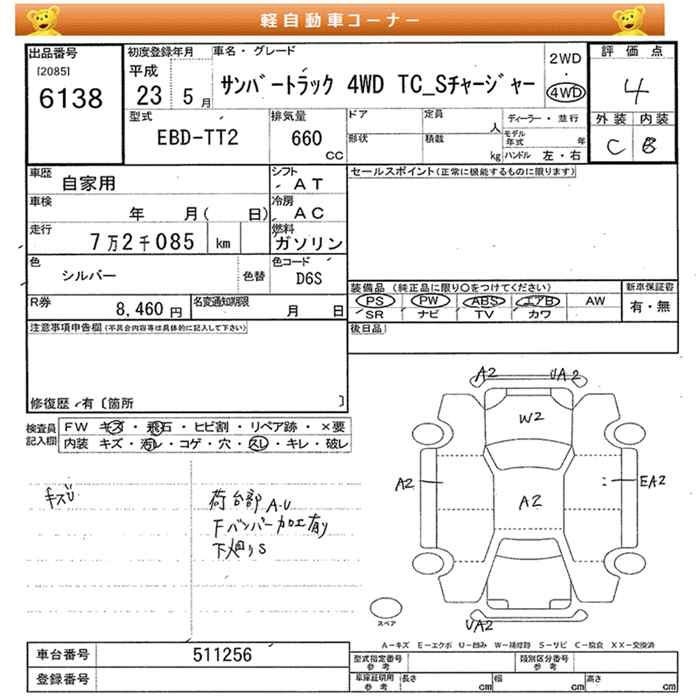 軽自動車コーナー
出品番号
[2085]
6138
初度登録年月
平成
23 5月
車名・グレード
サンバートラック 4WD TC_Sチャージャー
2WD
・
4WD
評価点
4
外装 内装
C B
型式
EBD-TT2
排気量
660
CC
ドア
定員
人
形状
積載
kg
ディーラー・並行
モデル年式 年
ハンドル 左・右
車歴
自家用
シフト
AT
車検
年 月( 日)
冷房
AC
走行
7万2千085 km
燃料
ガソリン
色
シルバー
色替
色コード
D6S
R券
8,460 円
名変通知期限
月 日
セールスポイント(正常に機能するものに限ります)
装備品(純正品に限り〇をつけてください)
新車保証書
PS PW ABS エアB AW
SR ナビ TV カワ
有・無
後日品
注意事項申告欄(不具合内容等は具体的に記入して下さい)
修復歴・有〔箇所 〕
検査員記入欄
FW キズ・飛石・ヒビ割・リペア跡・×要
内装 キズ・汚レ・コゲ・穴・スレ・キレ・破レ
キズU
荷台部 A.U
Fバンパー加工有り
下廻りS
A2 UA2
W2
A2
A2
EA2
UA2
スペア
A－キズ E－エクボ U－凹み W－補修跡 S－サビ C－腐食 XX－交換済
車台番号
511256
登録番号
型式指定番号
参考
類別区分番号
参考
車庫証明用
参考
長さ cm
幅 cm
高さ cm